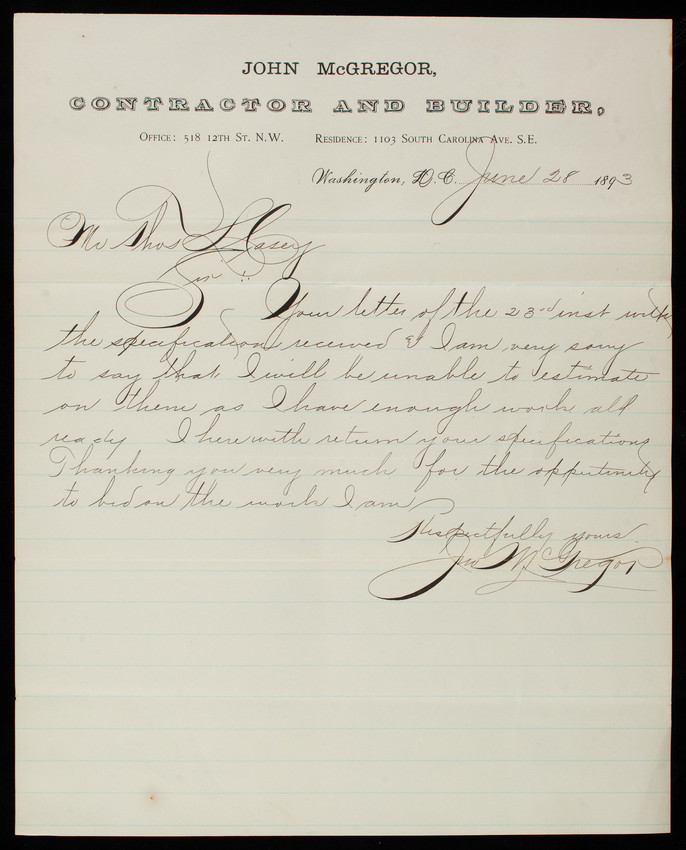 JOHN McGREGOR,
CONTRACTOR AND BUILDER,
OFFICE: 518 12TH ST. N.W. RESIDENCE: 1103 SOUTH CAROLINA AVE. S.E.
Washington, D.C. June 28 1893
Mr Thos L Casey
Sir:
Your letter of the 23rd inst with
the specifications received & I am very sorry
to say that I will be unable to estimate
on them as I have enough work all
ready I herewith return your specifications
Thanking you very much for the oppertunity
to bid on the work I am
Respectfully yours
Jno McGregor